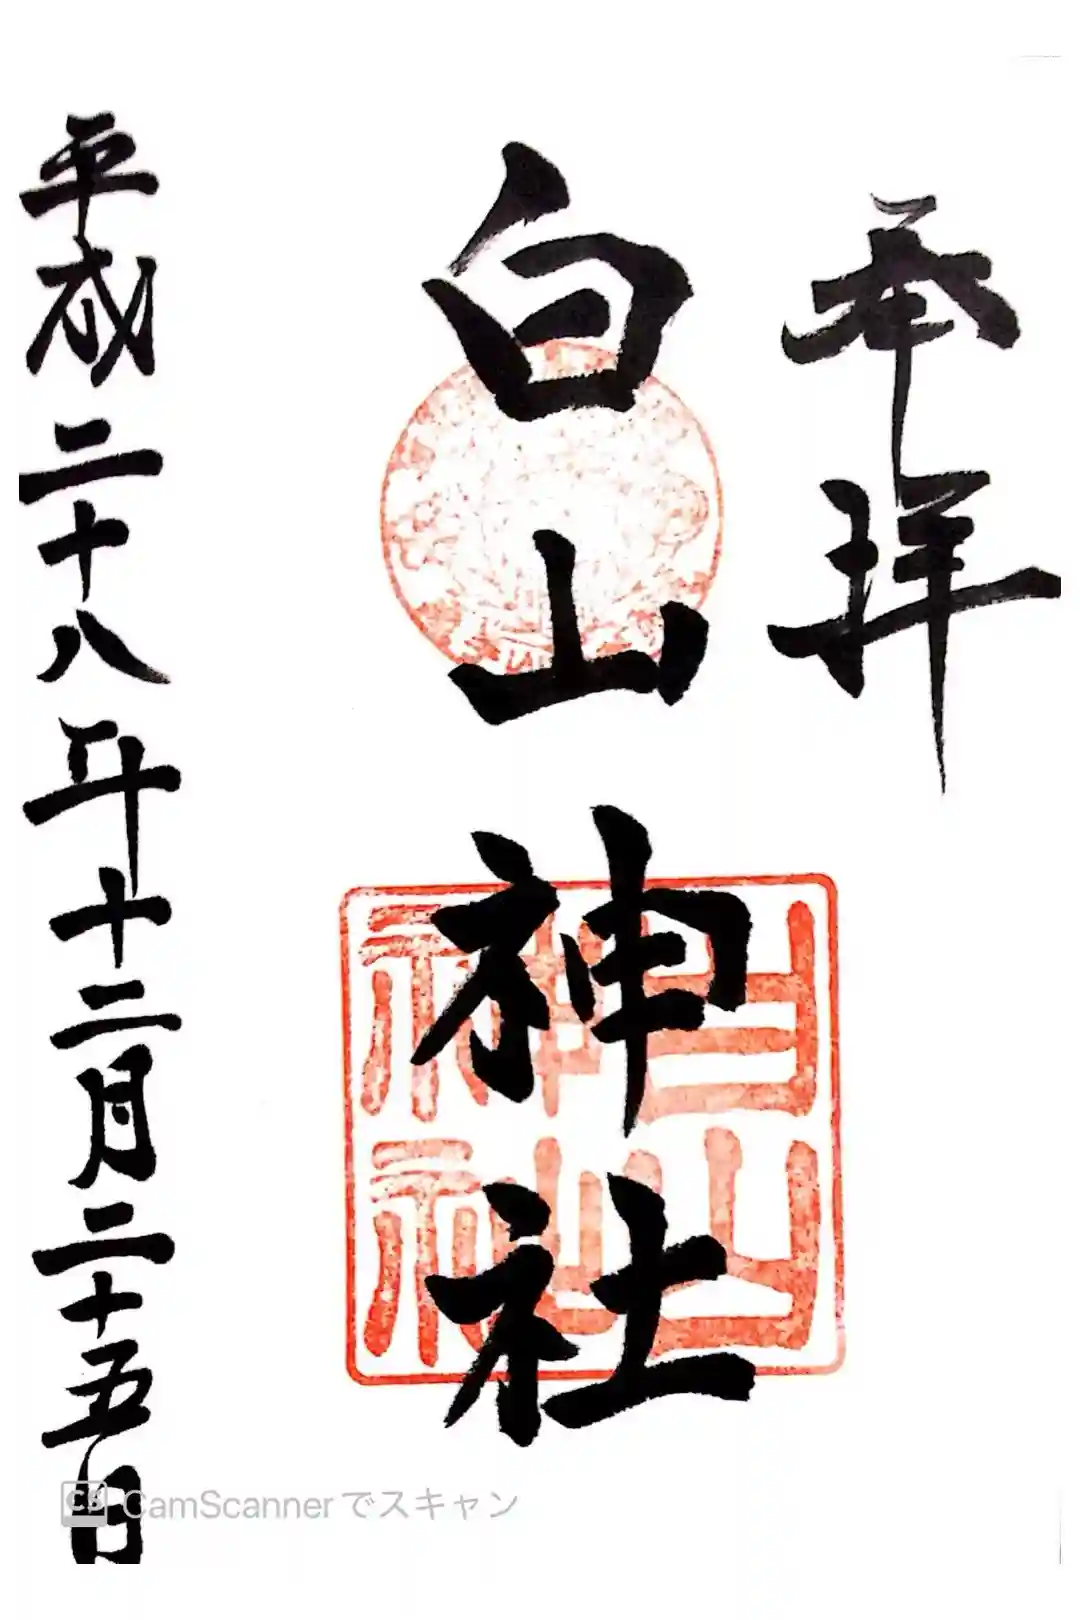 奉拝
白山神社
白山神社
平成二十八年十二月二十五日
CS CamScannerでスキャン